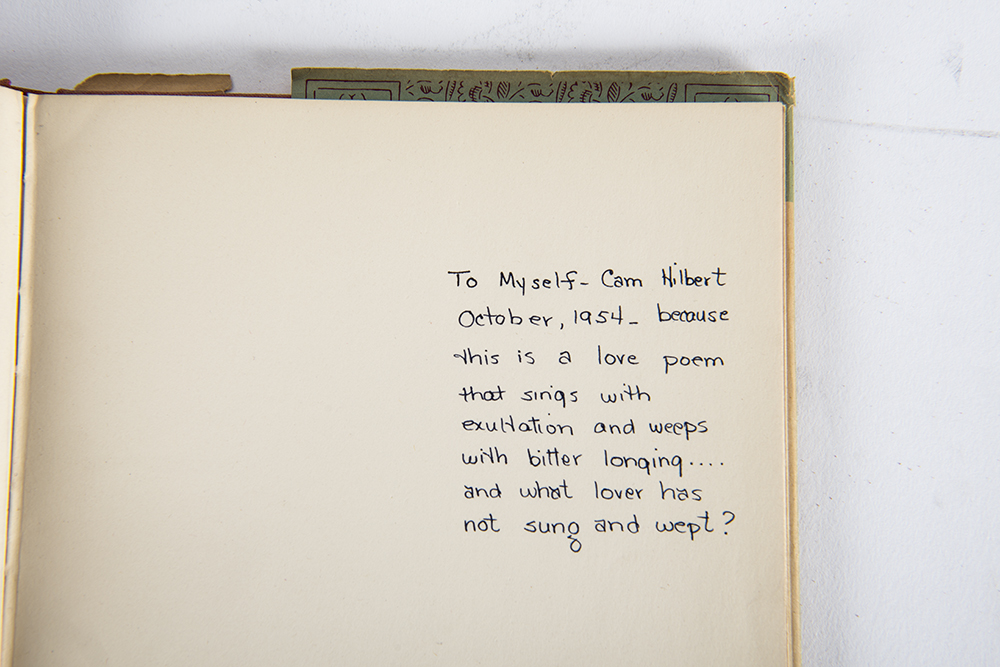 To Myself- Cam Hilbert
October, 1954_ because
this is a love poem
that sings with
exultation and weeps
with bitter longing....
and what lover has
not sung and wept?